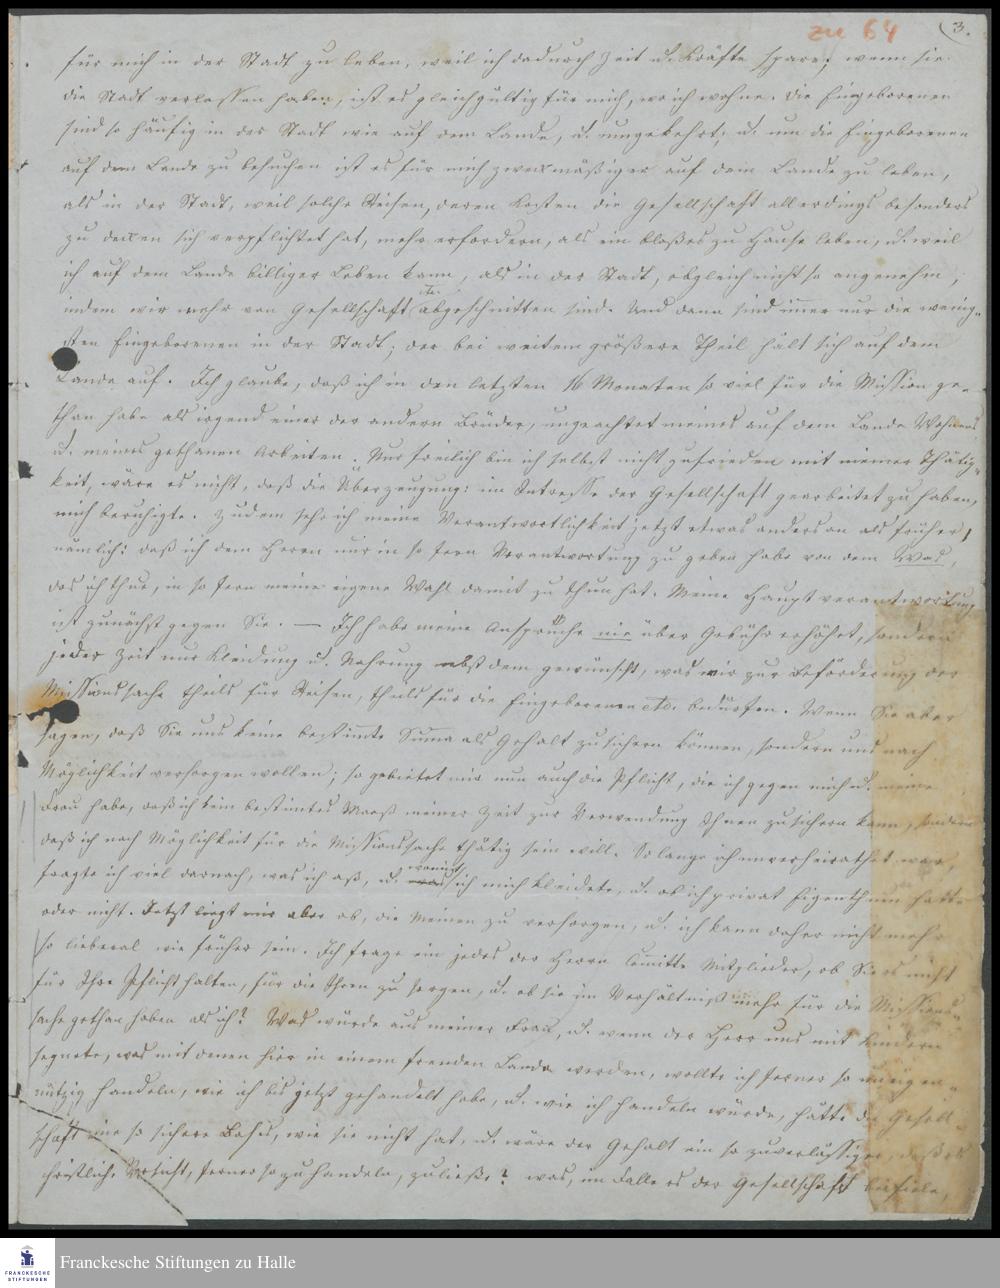 zu 64
3.
für mich in der Stadt zu leben, weil ich dadurch Zeit u. Kräfte spare; wenn sie
die Stadt verlassen haben, ist es gleichgültig für mich, wo ich wohne. Die Eingeborenen
sind so häufig in der Stadt wie auf dem Lande, u. umgekehrt; u. um die Eingeborenen
auf dem Lande zu besuchen ist es für mich zweckmäßiger auf dem Lande zu leben,
als in der Stadt, weil solche Reisen, deren Kosten die Gesellschaft allerdings besonders
zu decken sich verpflichtet hat, mehr erfordern, als ein bloßes zu Hause leben, u. weil
ich auf dem Lande billiger Leben kann, als in der Stadt, obgleich nicht so angenehm,
indem wir mehr von Gesellschaft abgeschnitten sind. Und dann sind immer nur die wenig-
sten Eingeborenen in der Stadt; der bei weitem größere Theil hält sich auf dem
Lande auf. Ich glaube, daß ich in den letzten 16 Monaten so viel für die Mission ge-
than habe als irgend einer der andern Brüder, ungeachtet meines auf dem Lande Wohnens
u. meines gethanen Arbeiten. Nur freilich bin ich selbst nicht zufrieden mit meiner Thätig-
keit, wäre es nicht, daß die Überzeugung: im Intresse der Gesellschaft gearbeitet zu haben,
mich beruhigte. Zudem sehe ich meine Verantwortlichkeit jetzt etwas anders an als früher,
nämlich: daß ich dem Herrn nur in so fern Verantwortung zu geben habe von dem Was,
das ich thue, in so fern meine eigene Wahl damit zu thun hat. Meine Hauptverantwortung
ist zunächst gegen Sie. — Ich habe meine Ansprüche nie über Gebühr erhöhet, sondern
jeder Zeit nur Kleidung u. Nahrung nebst dem gewünscht, was wir zur Beförderung der
Missionssache theils für Reisen, theils für die Eingeborenen etc. bedürfen. Wenn Sie aber
sagen, daß Sie uns keine bestimmte Summa als Gehalt zusichern können, sondern uns nach
Möglichkeit versorgen wollen; so gebietet mir nun auch die Pflicht, die ich gegen mich u. meine
Frau habe, daß ich kein bestimtes Maaß meiner Zeit zur Verwendung Ihnen zusichern kann, sondern
daß ich nach Möglichkeit für die Missionssache thätig sein will. Solange ich unverheirathet war,
fragte ich viel darnach, was ich aß, u. womit ich mich kleidete, u. ob ich privat Eigenthum hatte
oder nicht. Jetzt liegt mir aber ob, die Meinen zu versorgen, u. ich kann daher nicht mehr
so lieberal wie früher sein. Ich frage ein jedes der Herrn Comitte Mitglieder, ob Sie es nicht
für Ihre Pflicht halten, für die Ihren zu sorgen, u. ob sie im Verhältniß mehr für die Missions-
sache gethan haben als ich? Was würde aus meiner Frau, u. wenn der Herr uns mit Kindern
segnete, was mit denen hier in einem fremden Lande werden, wollte ich ferner so uneigen-
nützig handeln, wie ich bis jetzt gehandelt habe, u. wie ich handeln würde, hätte die Gesell-
schaft eine so sichere Basis, wie sie nicht hat, u. wäre der Gehalt ein so zuverlässiger, daß es
christliche Vorsicht, ferner so zu handeln, zuließe? was, im Falle es der Gesellschaft beifiele,
Franckesche Stiftungen zu Halle
FRANCKESCHE
STIFTUNGEN